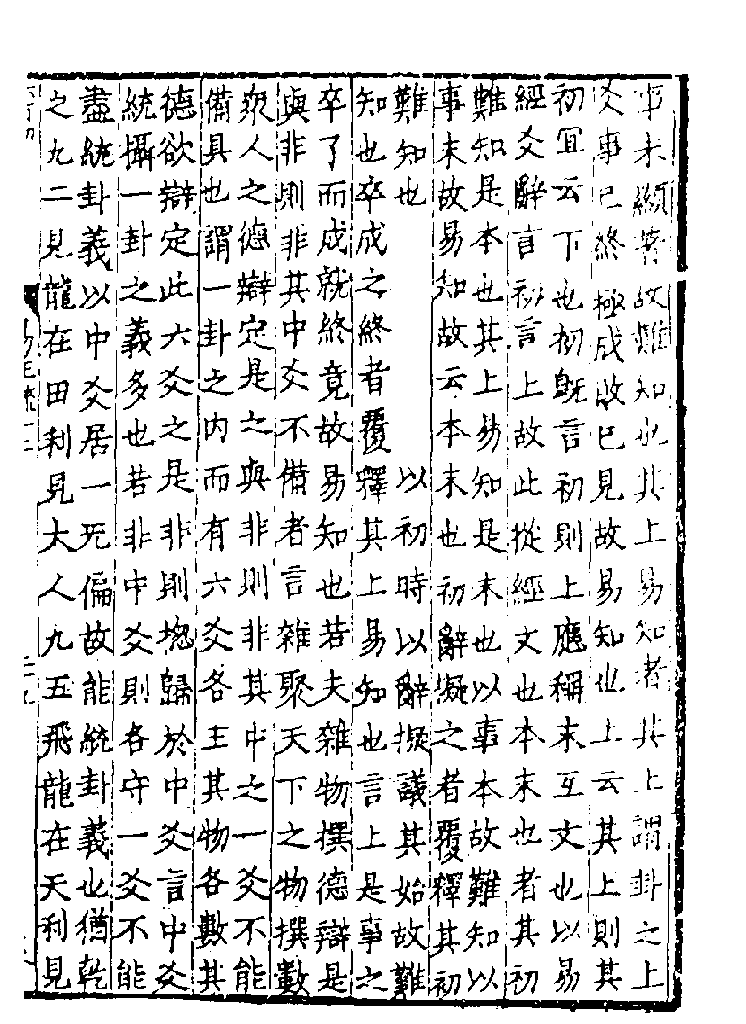 事未顯著故難知也其上易知者其上謂卦之上
爻事已終極成敗已見故易知也上云其上則其
初宜云下也初既言初則上應稱末互文也以易
經爻辭言初言上故此從經文也本末也者其初
難知是本也其上易知是末也以事本故難知以
事末故易知故云本末也初辭擬之者覆釋其初
難知也　以初時以辭擬議其始故難
知也卒成之終者覆釋其上易知也言上是事之
卒了而成就終竟故易知也若夫雜物撰德辯是
與非則非其中爻不備者言雜聚天下之物撰數
衆人之德辯定是之與非則非其中之一爻不能
備具也謂一卦之内而有六爻各王其物各數其
德欲辯定此六爻之是非則揔歸於中爻言中爻
統攝一卦之義多也若非中爻則各守一爻不能
盡統卦義以中爻居一无偏故能統卦義也猶乾
之九二見龍在田利見大人九五飛龍在天利見